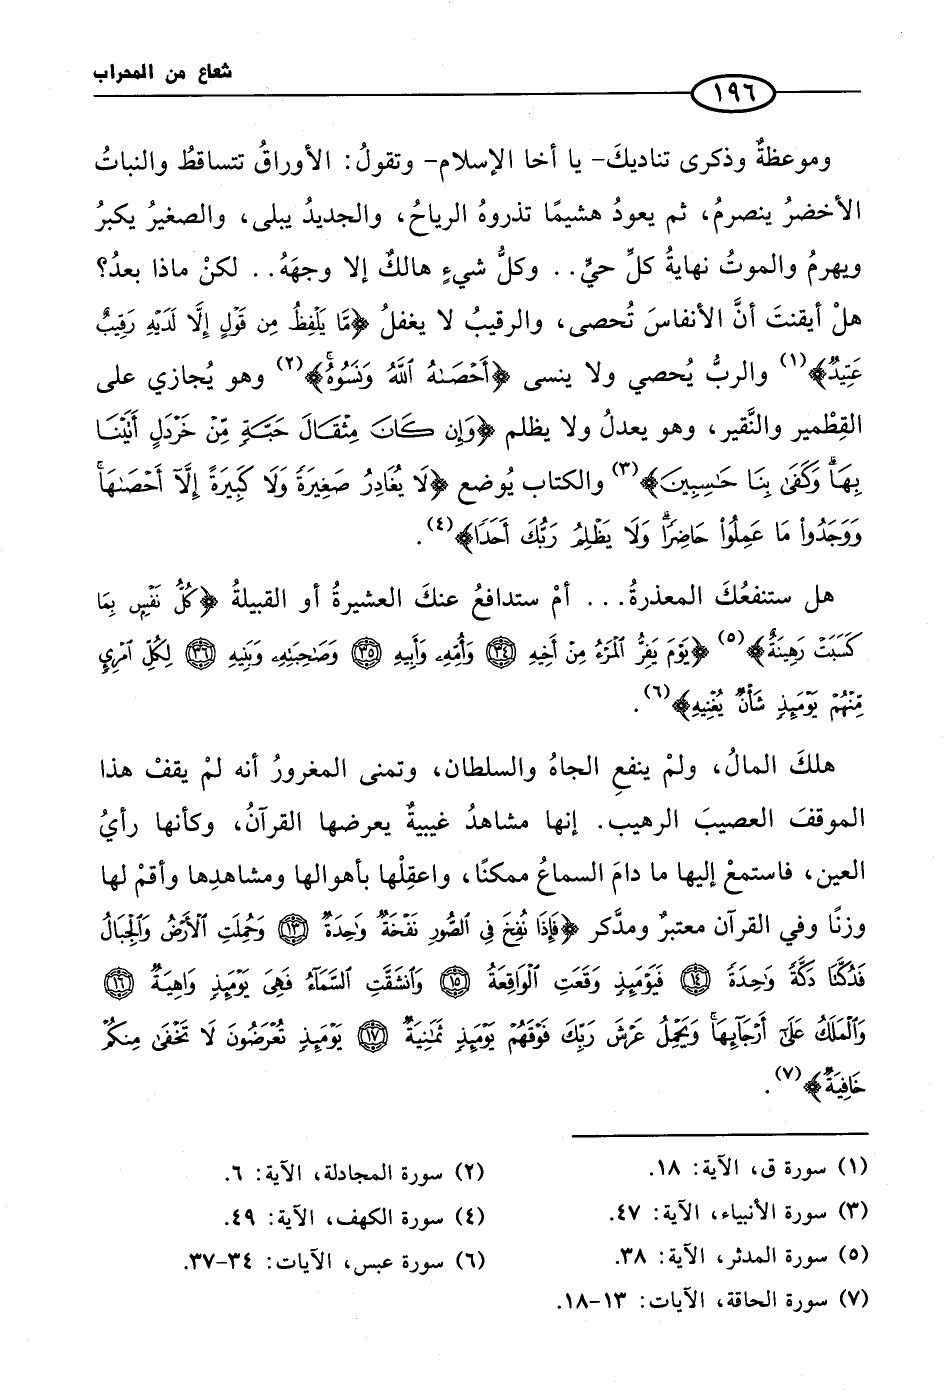 شعاع من المحراب
١٩٦
وموعظةٌ وذكرى تناديكَ- يا أخا الإسلام- وتقولُ: الأوراقُ تتساقطُ والنباتُ
الأخضرُ ينصرمُ، ثم يعودُ هشيمًا تذروهُ الرياحُ، والجديدُ يبلى، والصغيرُ يكبرُ
ويهرمُ والموتُ نهايةُ كلِّ حيٍّ.. وكلُّ شيءٍ هالكٌ إلا وجهَهُ.. لكنْ ماذا بعدُ؟
هلْ أيقنتَ أنَّ الأنفاسَ تُحصى، والرقيبُ لا يغفلُ ﴿مَّا يَلْفِظُ مِن قَوْلٍ إِلَّا لَدَيْهِ رَقِيبٌ
عَتِيدٌ﴾(١) والربُّ يُحصي ولا ينسى ﴿أَحْصَىٰهُ ٱللَّهُ وَنَسُوهُۚ﴾(٢) وهو يُجازي على
القِطْمير والنَّقير، وهو يعدلُ ولا يظلم ﴿وَإِن كَانَ مِثْقَالَ حَبَّةٍ مِّنْ خَرْدَلٍ أَتَيْنَا
بِهَاۗ وَكَفَىٰ بِنَا حَٰسِبِينَ﴾(٣) والكتاب يُوضع ﴿لَا يُغَادِرُ صَغِيرَةً وَلَا كَبِيرَةً إِلَّآ أَحْصَىٰهَاۚ
وَوَجَدُواْ مَا عَمِلُواْ حَاضِرًاۗ وَلَا يَظْلِمُ رَبُّكَ أَحَدًا﴾(٤).
هل ستنفعُكَ المعذرةُ... أمْ ستدافعُ عنكَ العشيرةُ أو القبيلةُ ﴿كُلُّ نَفْسٍۭ بِمَا
كَسَبَتْ رَهِينَةٌ﴾(٥) ﴿يَوْمَ يَفِرُّ ٱلْمَرْءُ مِنْ أَخِيهِ ٣٤ وَأُمِّهِۦ وَأَبِيهِ ٣٥ وَصَٰحِبَتِهِۦ وَبَنِيهِ ٣٦ لِكُلِّ ٱمْرِيٍٕ
مِّنْهُمْ يَوْمَئِذٍ شَأْنٌ يُغْنِيهِ﴾(٦).
هلكَ المالُ، ولمْ ينفعِ الجاهُ والسلطان، وتمنى المغرورُ أنه لمْ يقفْ هذا
الموقفَ العصيبَ الرهيب. إنها مشاهدُ غيبيةٌ يعرضها القرآنُ، وكأنها رأيُ
العين، فاستمعْ إليها ما دامَ السماعُ ممكنًا، واعقِلْها بأهوالها ومشاهدِها وأقمْ لها
وزنًا وفي القرآن معتبرٌ ومدَّكر ﴿فَإِذَا نُفِخَ فِى ٱلصُّورِ نَفْخَةٌ وَٰحِدَةٌ ١٣ وَحُمِلَتِ ٱلْأَرْضُ وَٱلْجِبَالُ
فَدُكَّتَا دَكَّةً وَٰحِدَةً ١٤ فَيَوْمَئِذٍ وَقَعَتِ ٱلْوَاقِعَةُ ١٥ وَٱنشَقَّتِ ٱلسَّمَآءُ فَهِىَ يَوْمَئِذٍ وَاهِيَةٌ ١٦
وَٱلْمَلَكُ عَلَىٰٓ أَرْجَآئِهَاۚ وَيَحْمِلُ عَرْشَ رَبِّكَ فَوْقَهُمْ يَوْمَئِذٍ ثَمَٰنِيَةٌ ١٧ يَوْمَئِذٍ تُعْرَضُونَ لَا تَخْفَىٰ مِنكُمْ
خَافِيَةٌ﴾(٧).
(١) سورة ق، الآية: ١٨.
(٢) سورة المجادلة، الآية: ٦.
(٣) سورة الأنبياء، الآية: ٤٧.
(٤) سورة الكهف، الآية: ٤٩.
(٥) سورة المدثر، الآية: ٣٨.
(٦) سورة عبس، الآيات: ٣٤-٣٧.
(٧) سورة الحاقة، الآيات: ١٣-١٨.